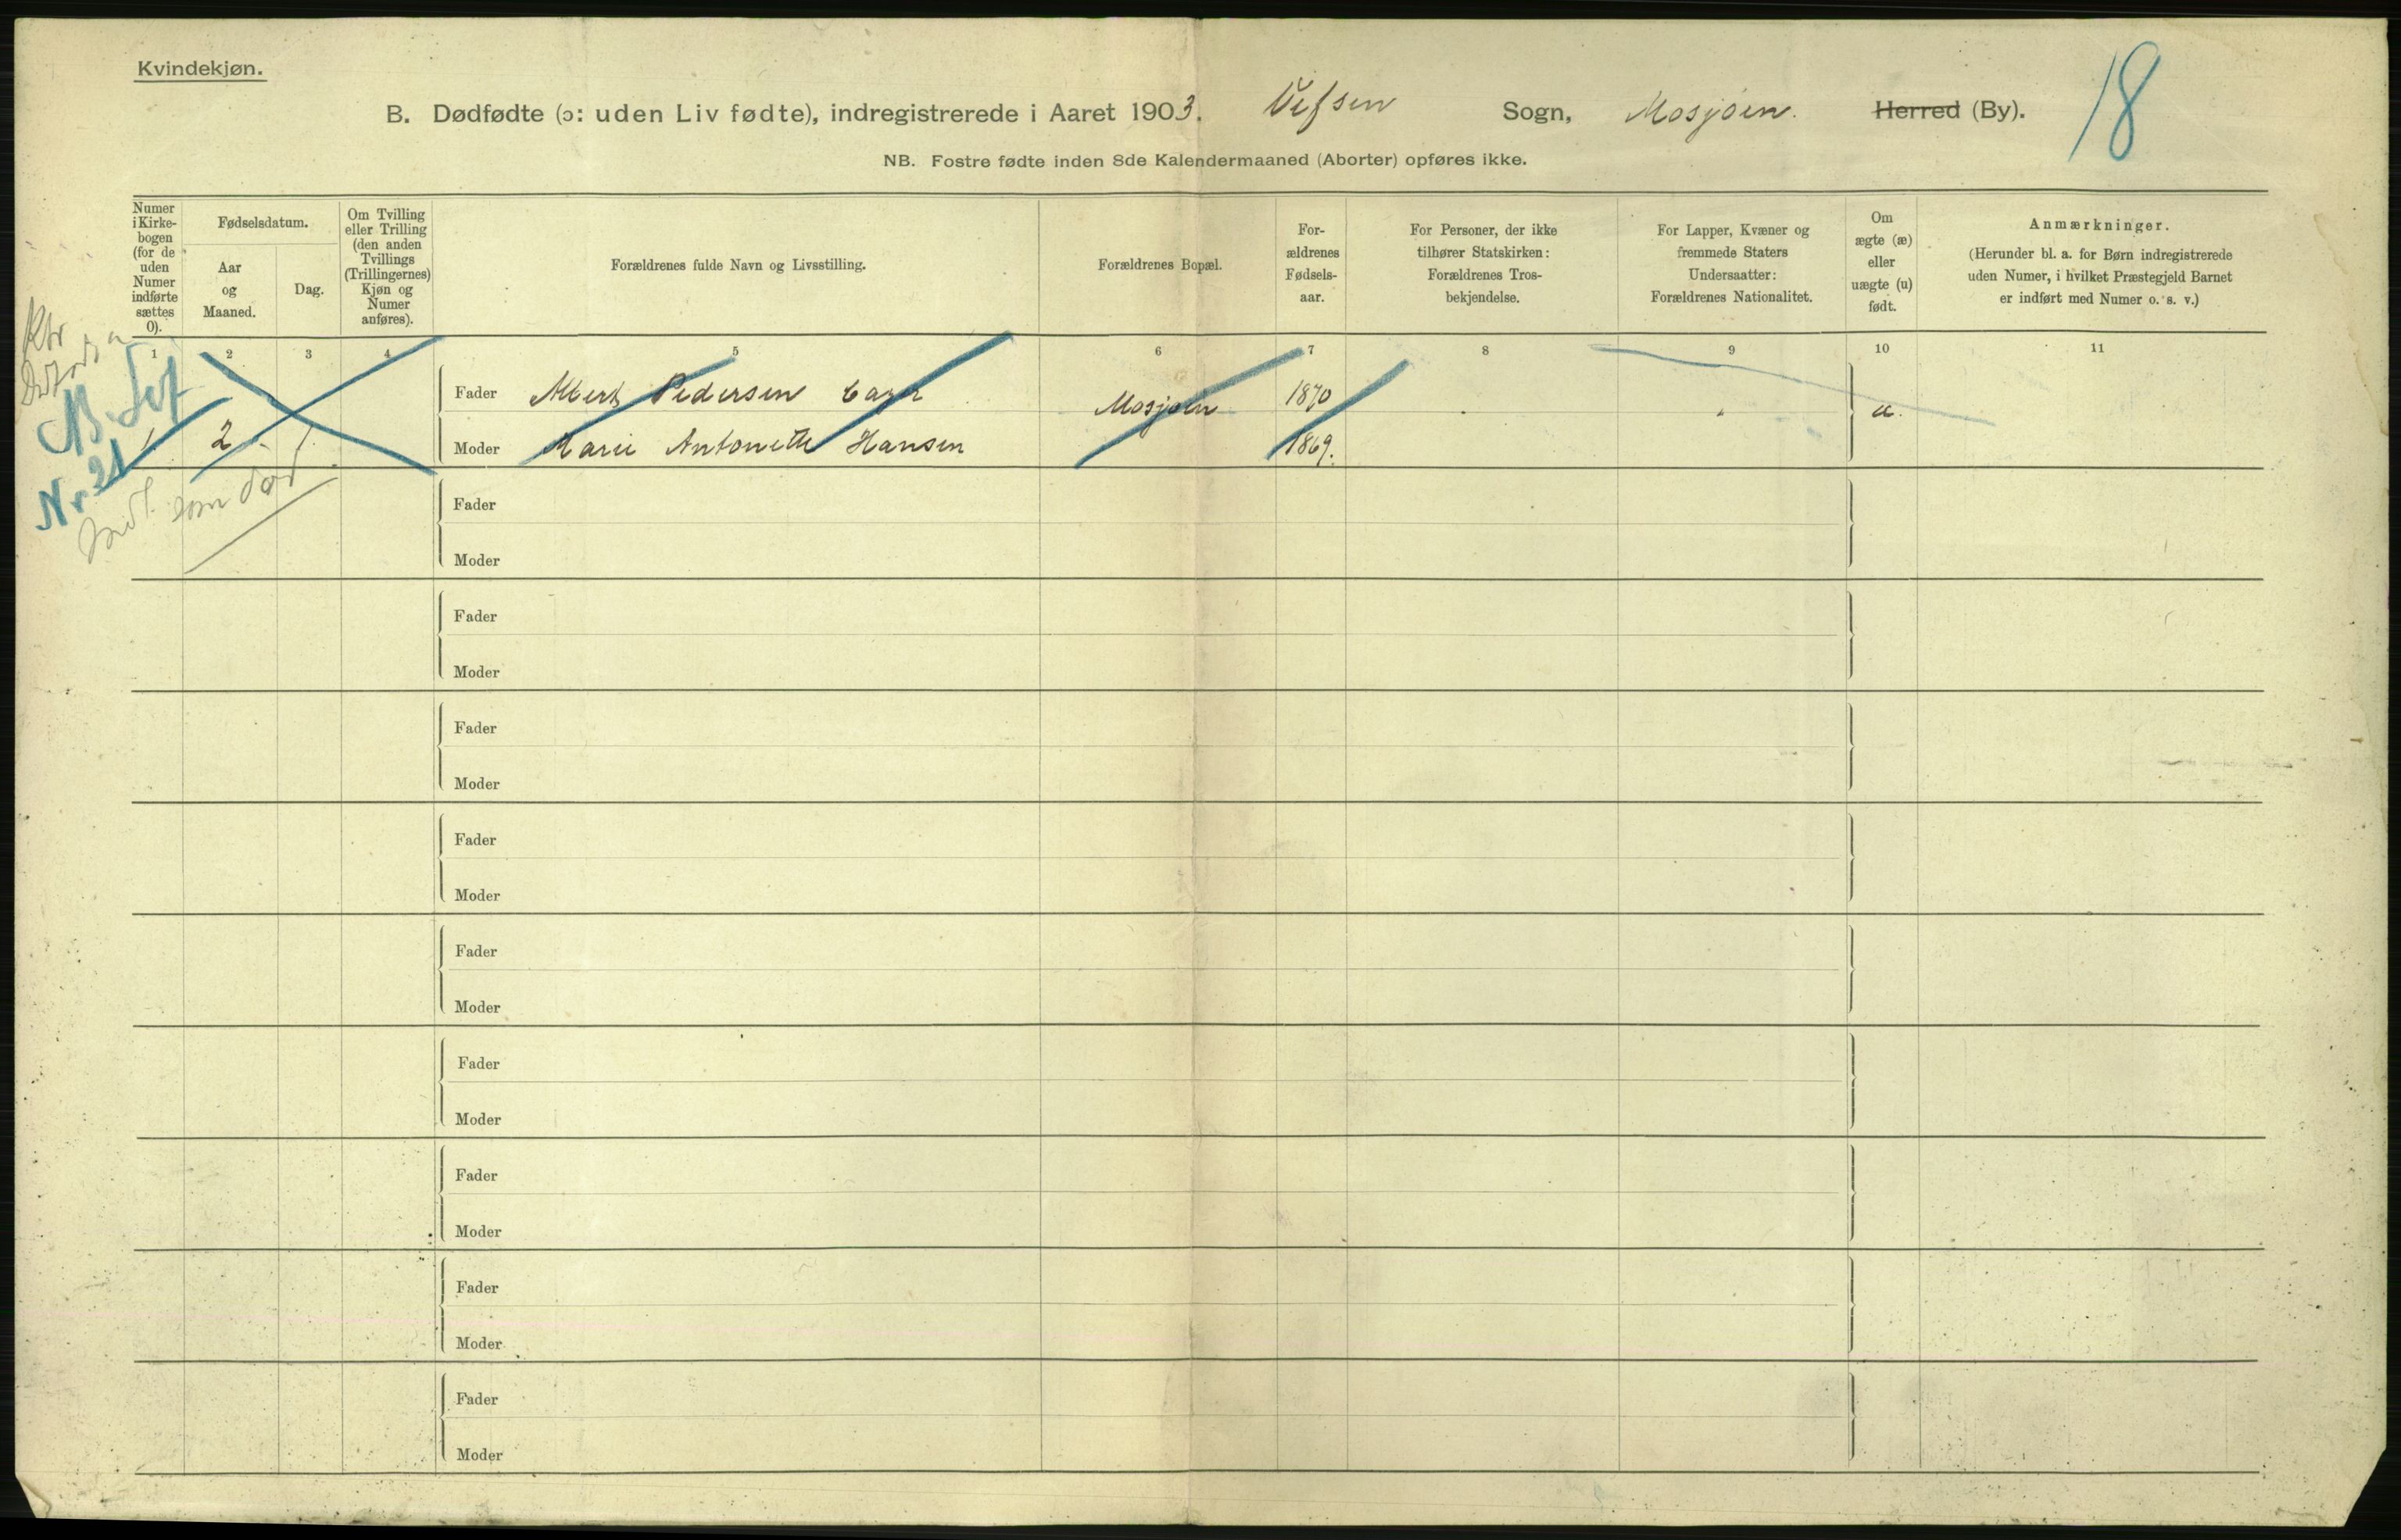 Kvindekjøn.
B. Dødfødte (ɔ: uden Liv fødte), indregistrerede i Aaret 1903. Vefsen Sogn, Mosjøen. Herred (By). 18
NB. Fostre fødte inden 8de Kalendermaaned (Aborter) opføres ikke.
Numer
i Kirke-
bogen
(for de
uden
Numer
indførte
sættes
0).
Fødselsdatum.
Aar
og
Maaned.
Dag.
Om Tvilling
eller Trilling
(den anden
Tvillings
(Trillingernes)
Kjøn og
Numer
anføres).
Forældrenes fulde Navn og Livsstilling.
Forældrenes Bopæl.
For-
ældrenes
Fødsels-
aar.
For Personer, der ikke
tilhører Statskirken:
Forældrenes Tros-
bekjendelse.
For Lapper, Kvæner og
fremmede Staters
Undersaatter:
Forældrenes Nationalitet.
Om
ægte (æ)
eller
uægte (u)
født.
Anmærkninger.
(Herunder bl. a. for Børn indregistrerede
uden Numer, i hvilket Præstegjeld Barnet
er indført med Numer o. s. v.)
1 2 3 4 5 6 7 8 9 10 11
Fader Albert Pedersen Mosjøen 1870
1. 2 1. æ.
Moder Marie Antonette Hansen 1869.
Nr 21
som død
Fader
Moder
Fader
Moder
Fader
Moder
Fader
Moder
Fader
Moder
Fader
Moder
Fader
Moder
Fader
Moder
Fader
Moder